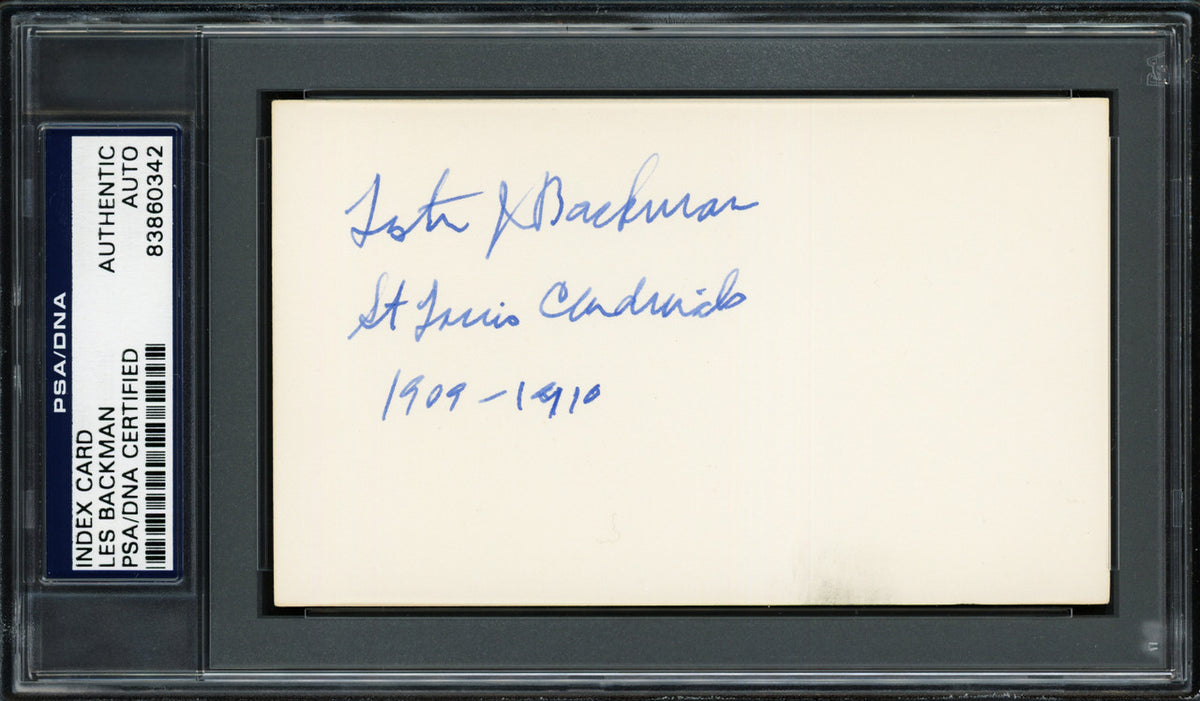 PSA/DNA
INDEX CARD
LES BACKMAN
PSA/DNA CERTIFIED
AUTHENTIC
AUTO
83860342
Lester J Backman
St Louis Cardinals
1909-1910